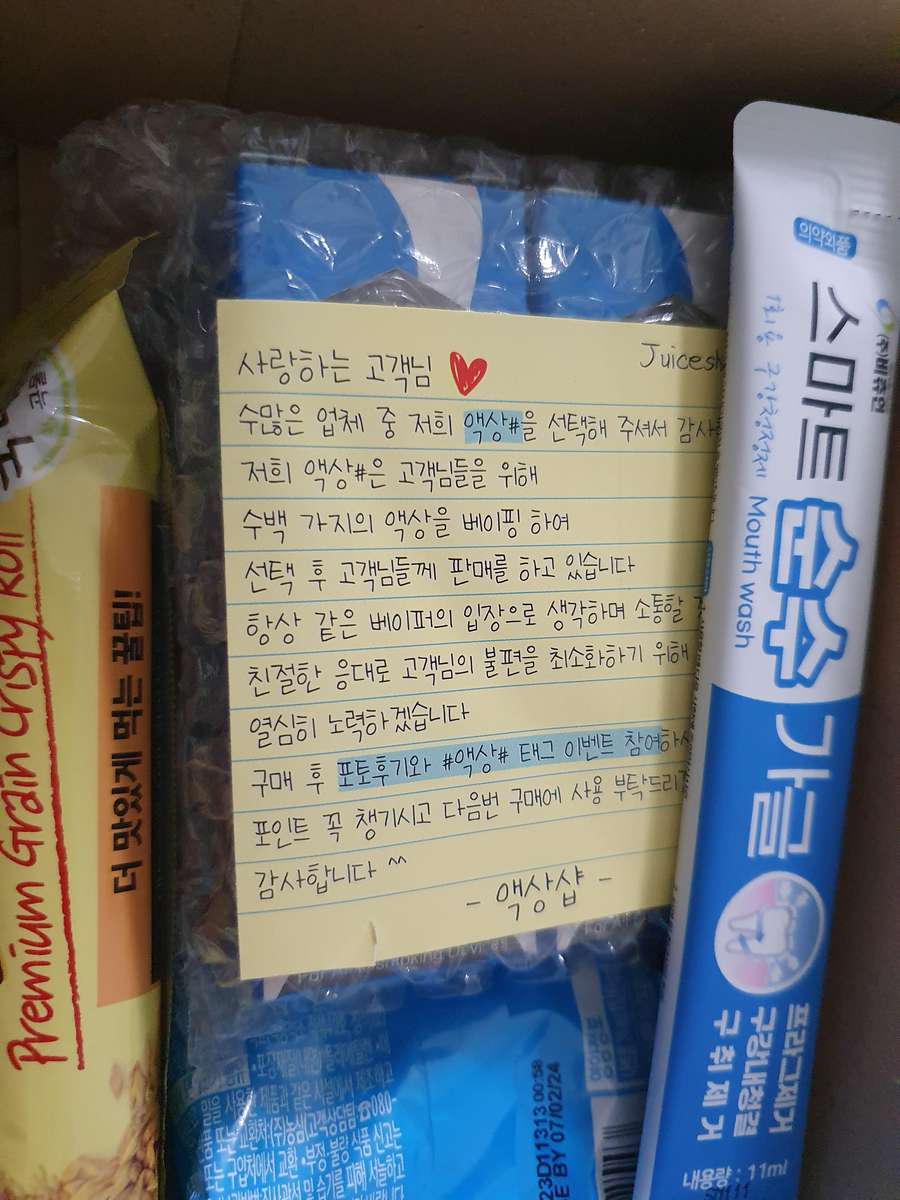 사랑하는 고객님
Juicesh
수많은 업체 중 저희 액상#을 선택해 주셔서 감사
저희 액상#은 고객님들을 위해
수백 가지의 액상을 베이핑 하여
선택 후 고객님들께 판매를 하고 있습니다
항상 같은 베이퍼의 입장으로 생각하며 소통할
친절한 응대로 고객님의 불편을 최소화하기 위해
열심히 노력하겠습니다
구매 후 포토후기와 #액상# 태그 이벤트 참여하
포인트 꼭 챙기시고 다음번 구매에 사용 부탁드리
감사합니다 ^^
- 액상샵 -
Premium Grain Crispy Roll
더 맛있게 먹는 꿀팁!
의약외품
(주)비쥬언
스마트 순수 가글
1회용 구강청정제 Mouth wash
프라그제거
구강내청결
구취제거
내용량 : 11ml
23D11313 00:58
E BY 07/02/24